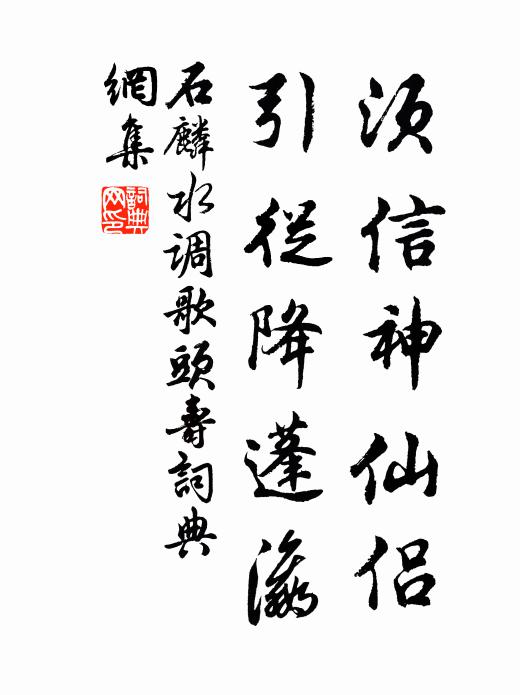 須信神仙侣
引從降蓬瀛
石麟水调歌頭壽詞典
網集
詞典
网印